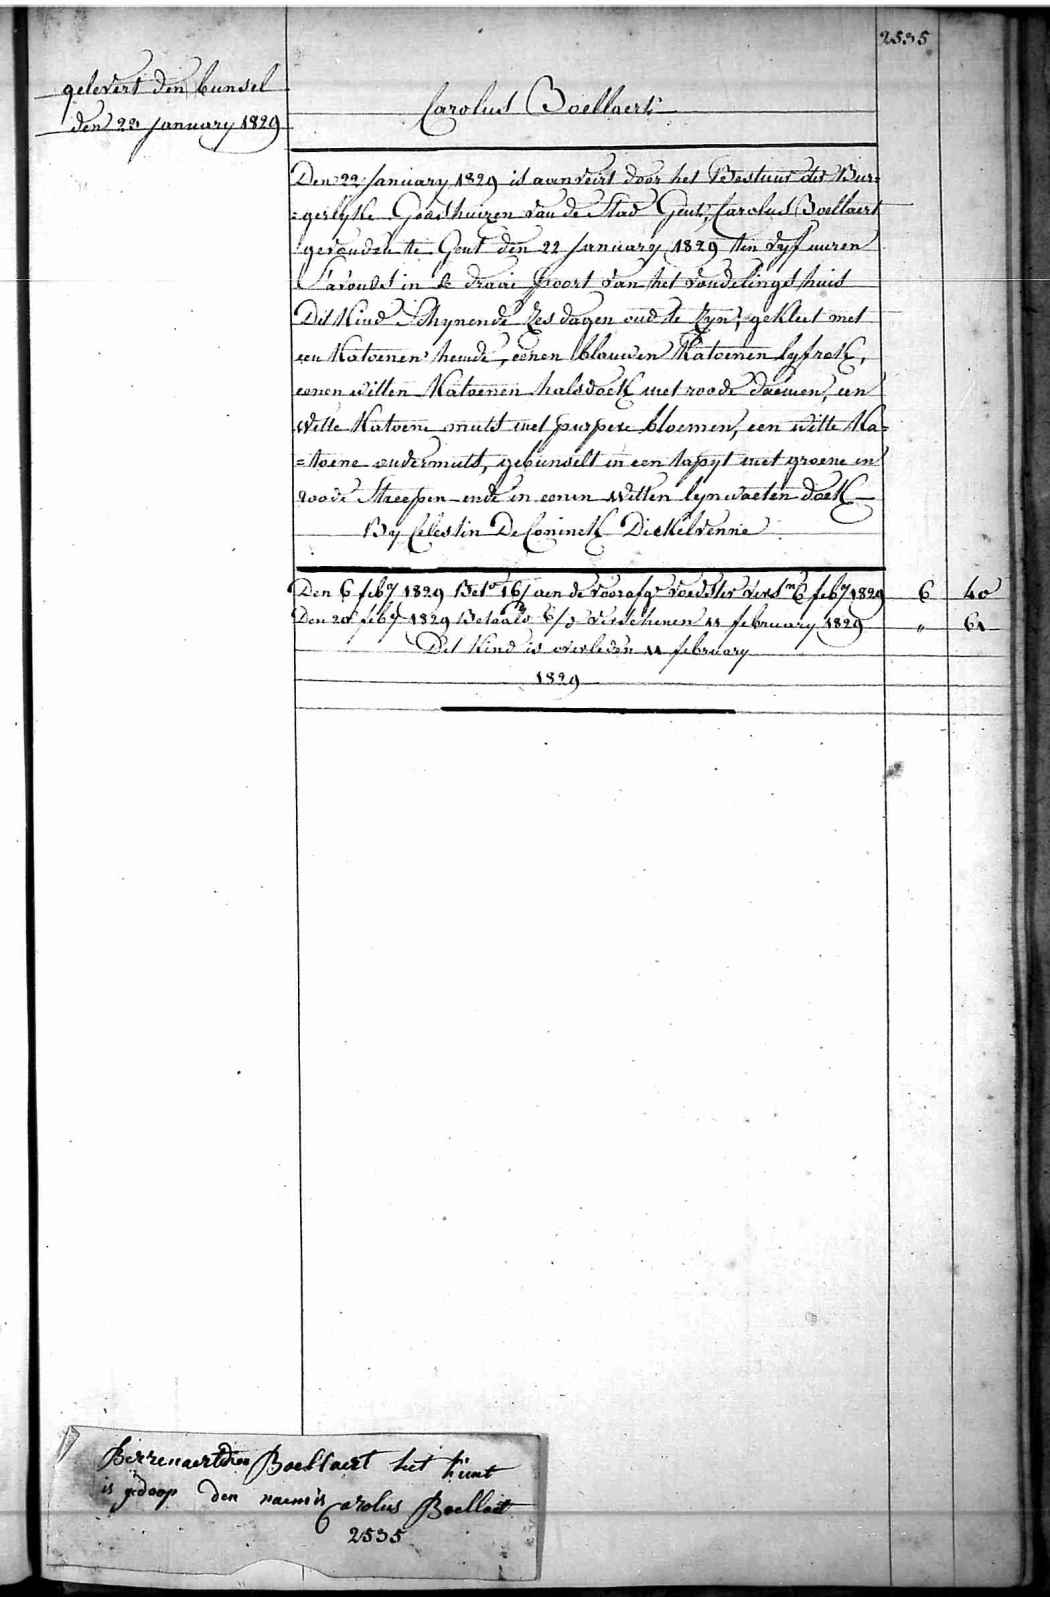 2535
gelevert den bunsel
den 23 January 1829
Carolus Boellaert
Den 22 January 1829 is aenveirt door het Bestuur der Bur=
=gerlyke Godshuizen van de Stad Gent, Carolus Boellaert
gevonden te Gent den 22 January 1829 ten vyf uuren
S'avonds in de draai poort van het vondelingshuis
Dit Kind Schynende Zes dagen oud te zyn, gekleet met
een Katoenen hemde, eenen blauwen Katoenen lyfrok,
eenen witten Katoenen halsdoek met roode daemen, een
Witte Katoene muts met purpere bloemen, een witte Ka=
=toene ondermuts, gebunselt in een tapyt met groene en
roode Streepen ende in eenen Witten lynwaeten doek
By Celestin De Coninck Dickelvenne
Den 6 feby 1829 Beto 16/ aen de voorafge voedster vers.m 6 feby 1829 6 40
Den 20 feby 1829 Betaald 6/ verschenen 11 february 1829 " 61
Dit Kind is overleden 11 february
1829
Boellaert het kint
is gedoop den naem is Carolus Boellaert
2535